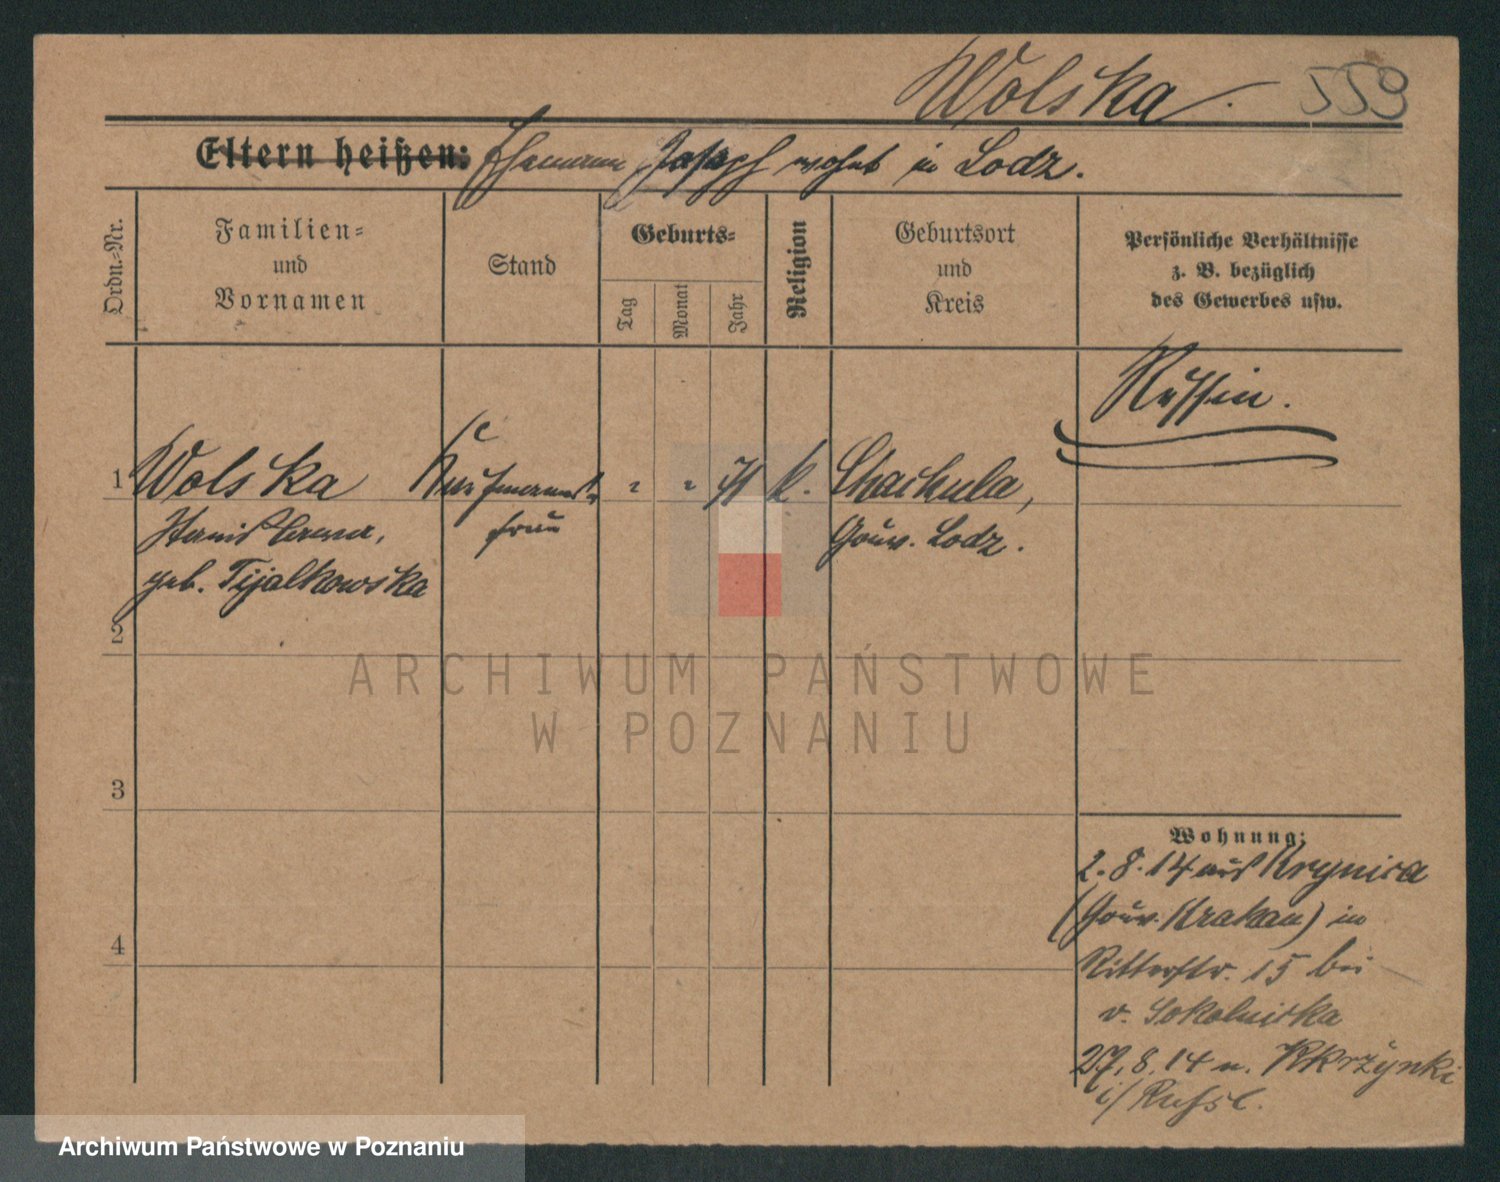 Wolska. 559
Eltern heißen: Ehemann Joseph wohnt in Lodz.
Ordn.-Nr.
Familien-
und
Vornamen
Stand
Geburts-
Tag
Monat
Jahr
Religion
Geburtsort
und
Kreis
Persönliche Verhältnisse
z. B. bezüglich
des Gewerbes usw.
Russin.
1 Wolska Kaufmanns k. Chachula,
frau
Stanislawa, Gouv. Lodz.
geb. Fijalkowska
2
3
4
Wohnung:
2.8.14 aus Krynica
(Gouv. Krakau) in
Ritterstr. 15 bei
v. Sokolnicka
27.8.14 n.
i/Russl.
ARCHIWUM PAŃSTWOWE
W POZNANIU
Archiwum Państwowe w Poznaniu